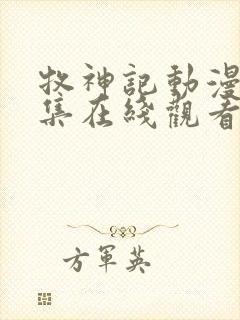 牧神記動漫
集在綫觀看
方軍英